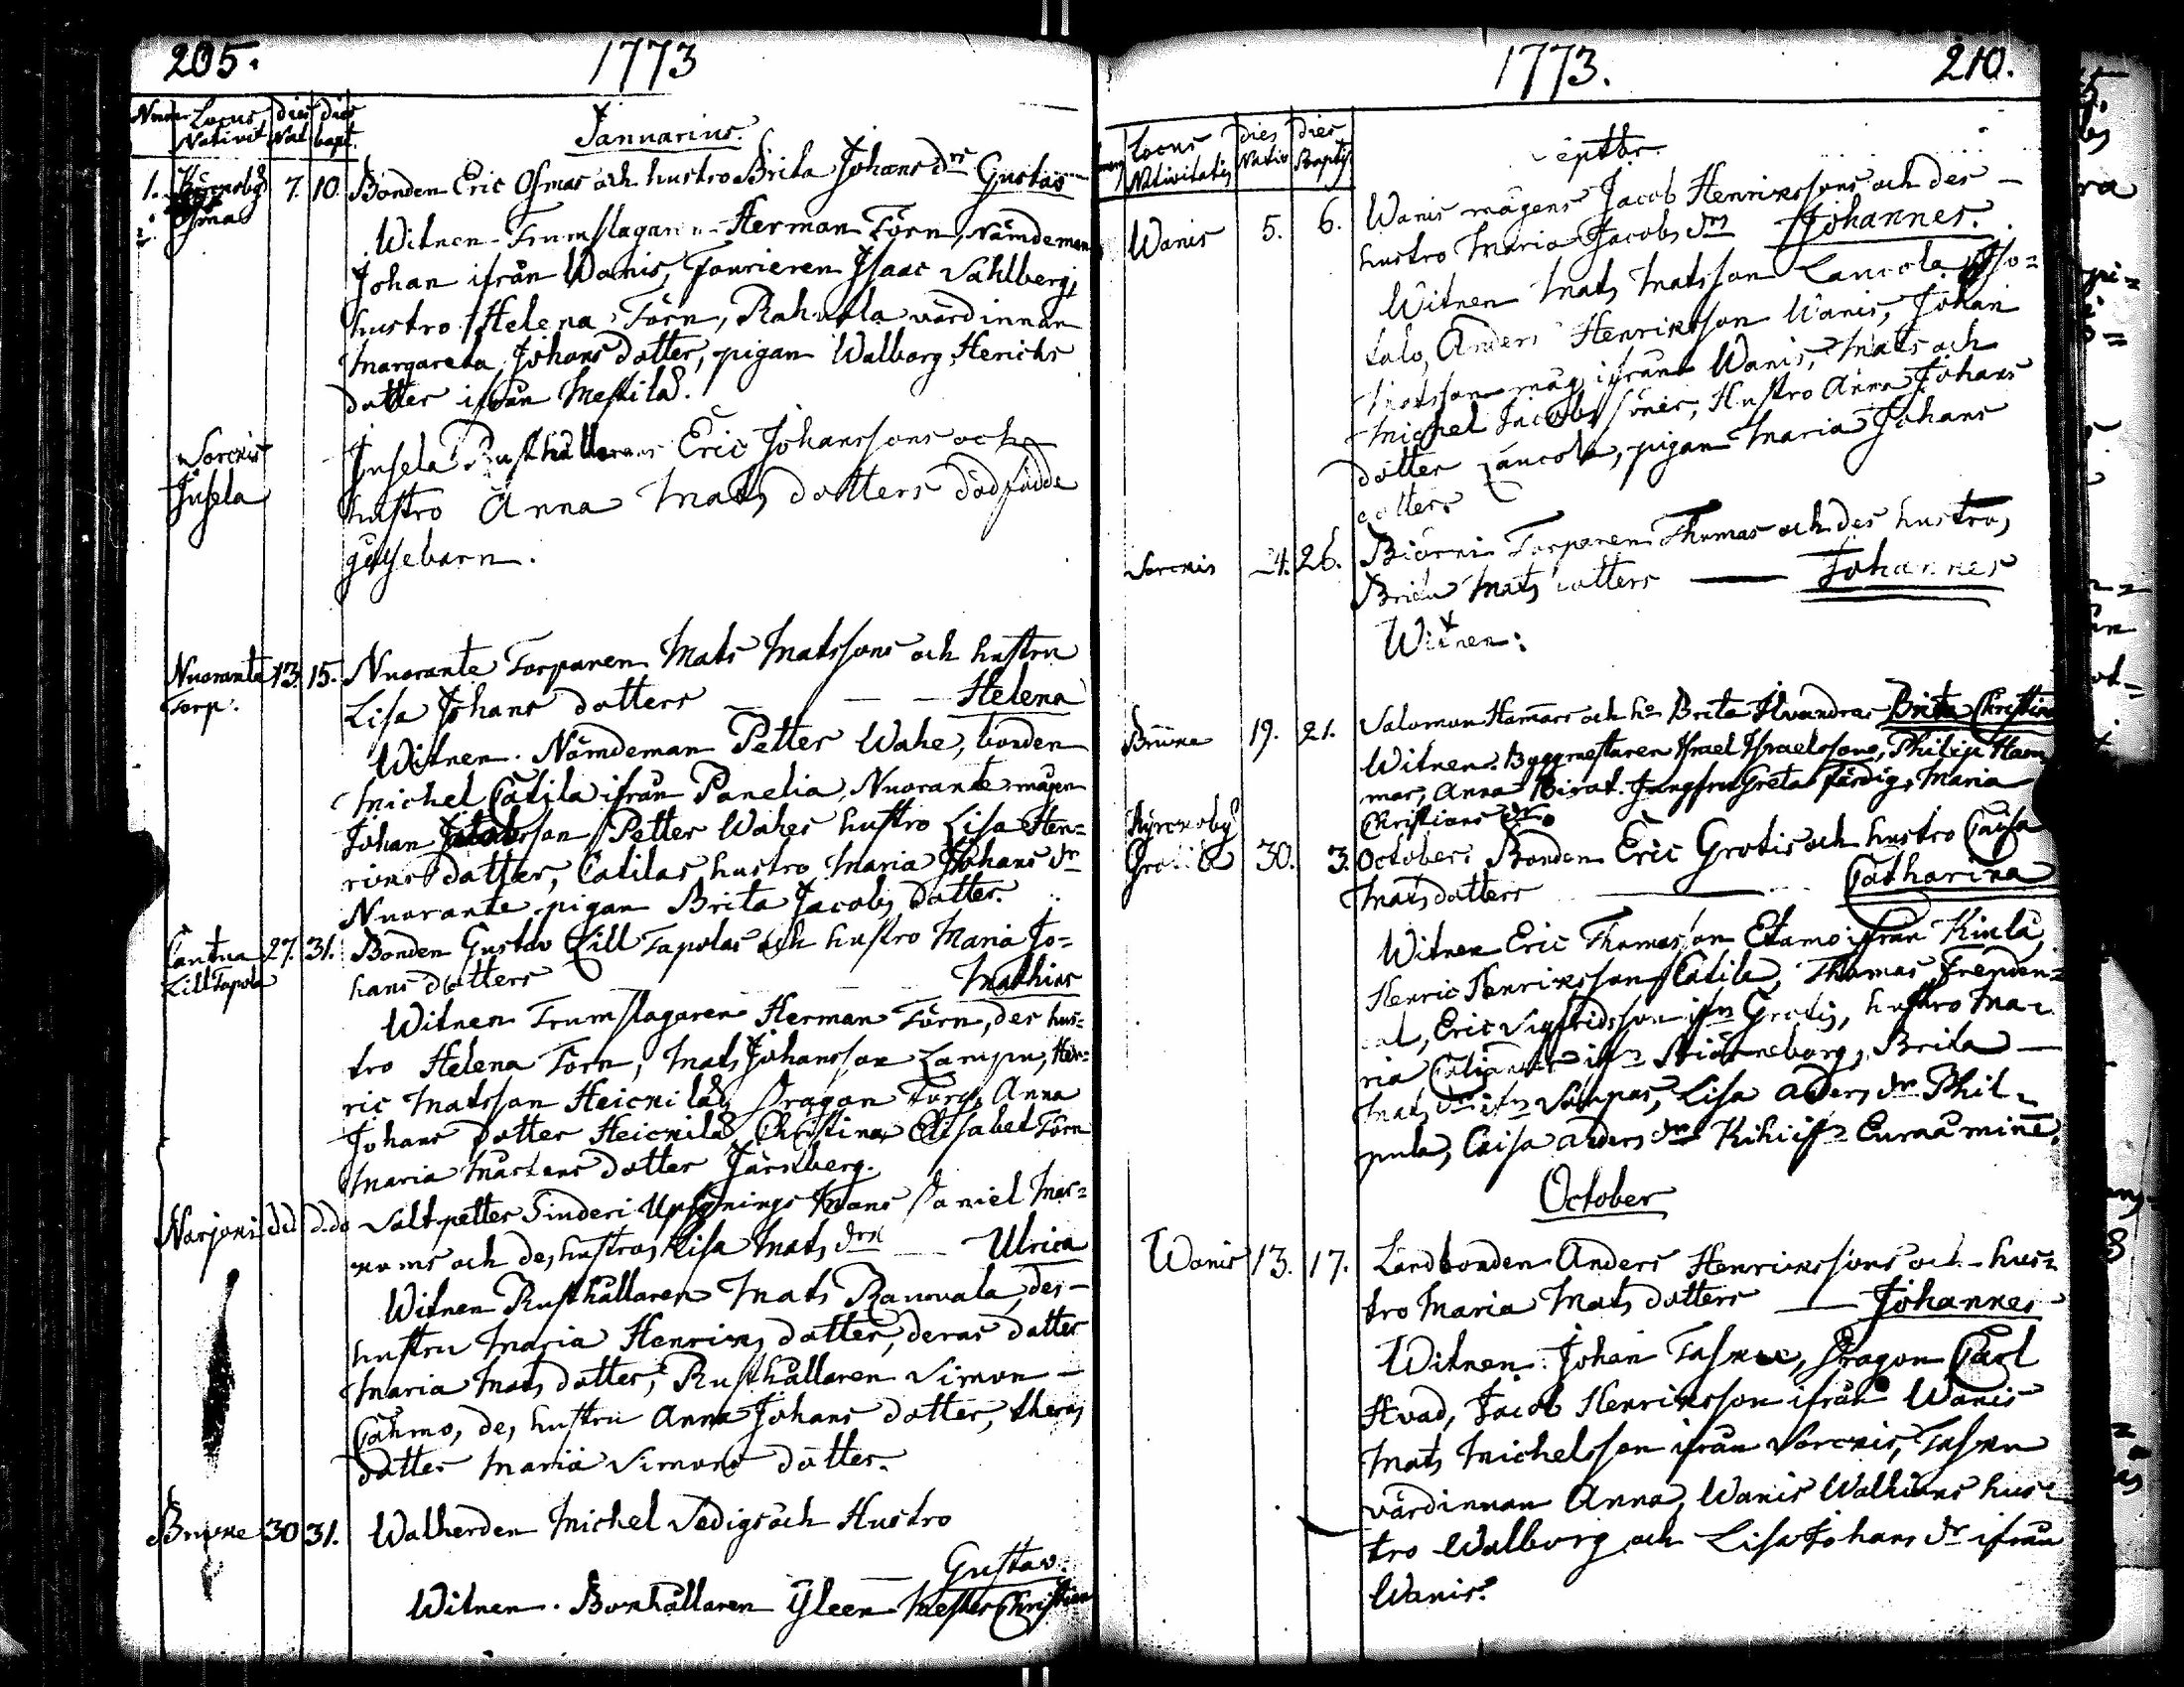 205.
1773
Numer Locus Nativit dies Nat dies bapt.
Januarius.
1. Osma 7. 10. Bonden Eric Osmas och hustro Brita Johans drs Gustav
Witnen Trumslagaren Herman Törn, Nämdeman
Johan ifrån Wanis, Fourieren Isaac Sahlberg,
hustro Helena Törn, Rahvola värdinnan
Margareta Johans dotter, pigan Walborg Henichs
dotter ifrån Mestilä.
Sorckis
Insela
Insela Rusthållarens Eric Johanssons och
hustro Anna Mats dotters dödfödde
gossebarn.
Nuoranta Torp. 13. 15. Nuorante Torparen Mats Matssons och hustru
Lisa Johans dotters — — Helena
Witnen. Nämdeman Petter Wahe, bonden
Michel Catila ifrån Panelia, Nuorante mågen
Johan Jacobsson, Petter Wahes hustro Lisa Hen=
rics dotter, Catilas hustro Maria Johans dr
Nuorante pigan Brita Jacobs dotter.
Cantua Lill Tapola 27. 31. Bonden Gustav Lill Tapolas och hustro Maria Jo=
hans dotters — Mathias
Witnen Trumslagaren Herman Törn, des hus=
tro Helena Törn, Mats Johansson Lampu, Hen=
ric Matsson Heickilä, Dragon Turg, Anna
Johans dotter Heickilä, Christina Elisabet Törn
Maria Mårtens dotter Järnberg.
Narjoki dd d.do Saltpetter Siuderi Upsynings Mans Daniel Mar=
ms och des hustros Lisa Mats drs — Ulrica
Witnen Rusthållaren Mats Ranvala, des —
hustru Maria Henrics dotter, deras dotter
Maria Mats dotter, Rusthållaren Simon —
Cahmo, des hustru Anna Johans dotter, theras
dotter Maria Simons dotter.
Bruke 30 31. Walherden Michel Sedigs och Hustro
— Gustav.
Witnen. Bonhållaren Yleen Mester Christian
1773.
210.
Locus Nativitatis dies Nativ dies Baptis
eptbr.
Wanis 5. 6. Wanis mågens Jacob Henrikssons och des —
hustro Maria Jacobs drs Johannes.
Witnen Mats Matsson Lancola Iso=
talo, Anders Henriksson Wanis, Johan
Matsson måg ifrån Wanis, Mats och
Michel Jacobs söner, Hustro Anna Johans
dotter Lancola, pigan Maria Johans
dotter
Sorckis 24. 26. Biörni Torparen Thomas och des hustro,
Brita Mats dotters — Johannes
Witnen:
Bruke 19. 21. Salomon Hamars och ho Brita Ilvandras Brita Christina
Witnen. Byggmestaren Israel Israelsons, Philip Ham
mar, Anna Kirat. Jungfru Greta Färdig, Maria
Christians dtr.
Kyrckoby Grotila 30. 3. Octobers Bonden Eric Grotis och hustro Caisa
Matsdotters — Catharina
Witnen Eric Thomasson Etamo ifrån Kiula,
Henric Henriksson Catila, Thomas Frenden=
al, Eric Sigfridsson ifn Grotis, hustro Ma=
ria ifn Biörneborg, Brita —
Mats dr ifn Sampas, Lisa Aders dr Phil=
pula, Caisa Anders dr Kihi ifn Euraåmine.
October
Wanis 13. 17. Landbonden Anders Henrikssons och hus=
tro Maria Mats dotters — Johannes
Witnen Johan Tasku, Dragon Carl
Hvad, Jacob Henriksson ifrån Wanis
Mats Michelsson ifrån Sorckis, Tasku
värdinnan Anna, Wanis Walkians hus=
tro Walborg och Lisa Johans dr ifrån
Wanis.